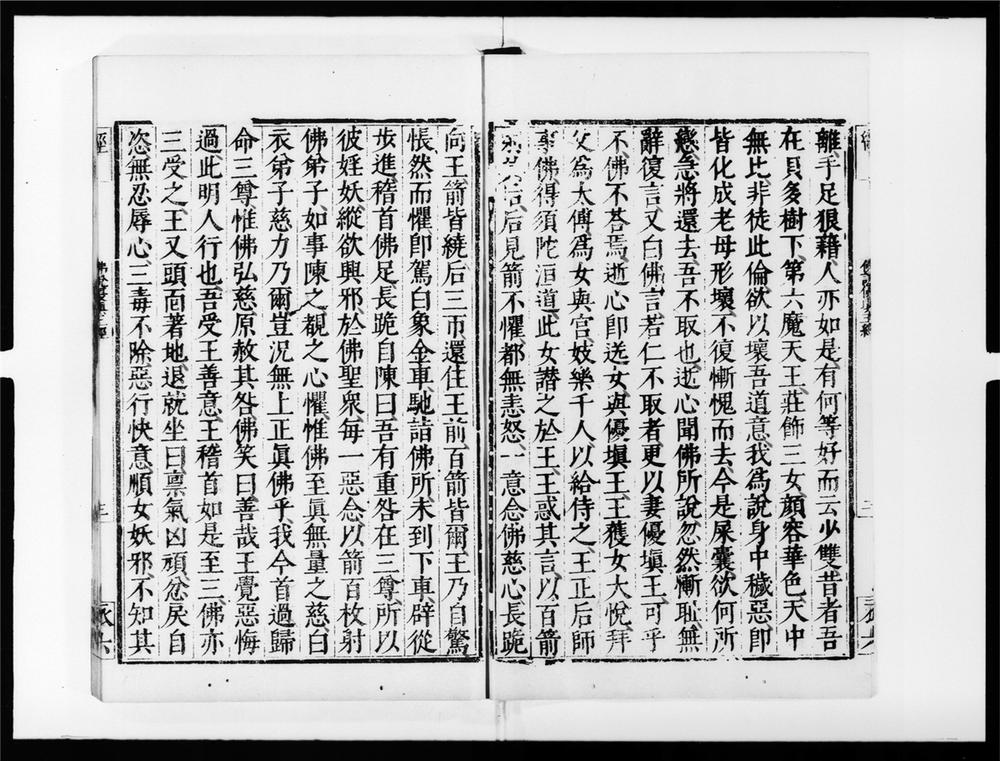 離手足狼藉人亦如是有何等好而云少雙昔者吾
在貝多樹下第六魔天王莊飾三女顏容華色天中
無比非徒此倫欲以壞吾道意我爲說身中穢惡卽
皆化成老母形壞不復慚愧而去今是屎囊欲何所
戀急將還去吾不取也逝心聞佛所說忽然慚耻無
辭復言又白佛言若仁不取者更以妻優塡王可乎
不佛不荅焉逝心卽送女與優塡王王獲女大悅拜
父爲太傅爲女興宮妓樂千人以給侍之王正后師
事佛得須陀洹道此女譖之於王王惑其言以百箭
后后見箭不懼都無恚怒一意念佛慈心長跪
向王箭皆繞后三帀還住王前百箭皆爾王乃自驚
悵然而懼卽駕白象金車馳詣佛所未到下車辟從
步進稽首佛足長跪自陳曰吾有重咎在三尊所以
彼婬妖縱欲興邪於佛聖衆每一惡念以箭百枚射
佛弟子如事陳之覩之心懼惟佛至眞無量之慈白
衣弟子慈力乃爾豈況無上正眞佛乎我今首過歸
命三尊惟佛弘慈原赦其咎佛笑曰善哉王覺惡悔
過此明人行也吾受王善意王稽首如是至三佛亦
三受之王又頭面著地退就坐曰禀氣凶頑忿戾自
恣無忍辱心三毒不除惡行快意順女妖邪不知其
經
三
三